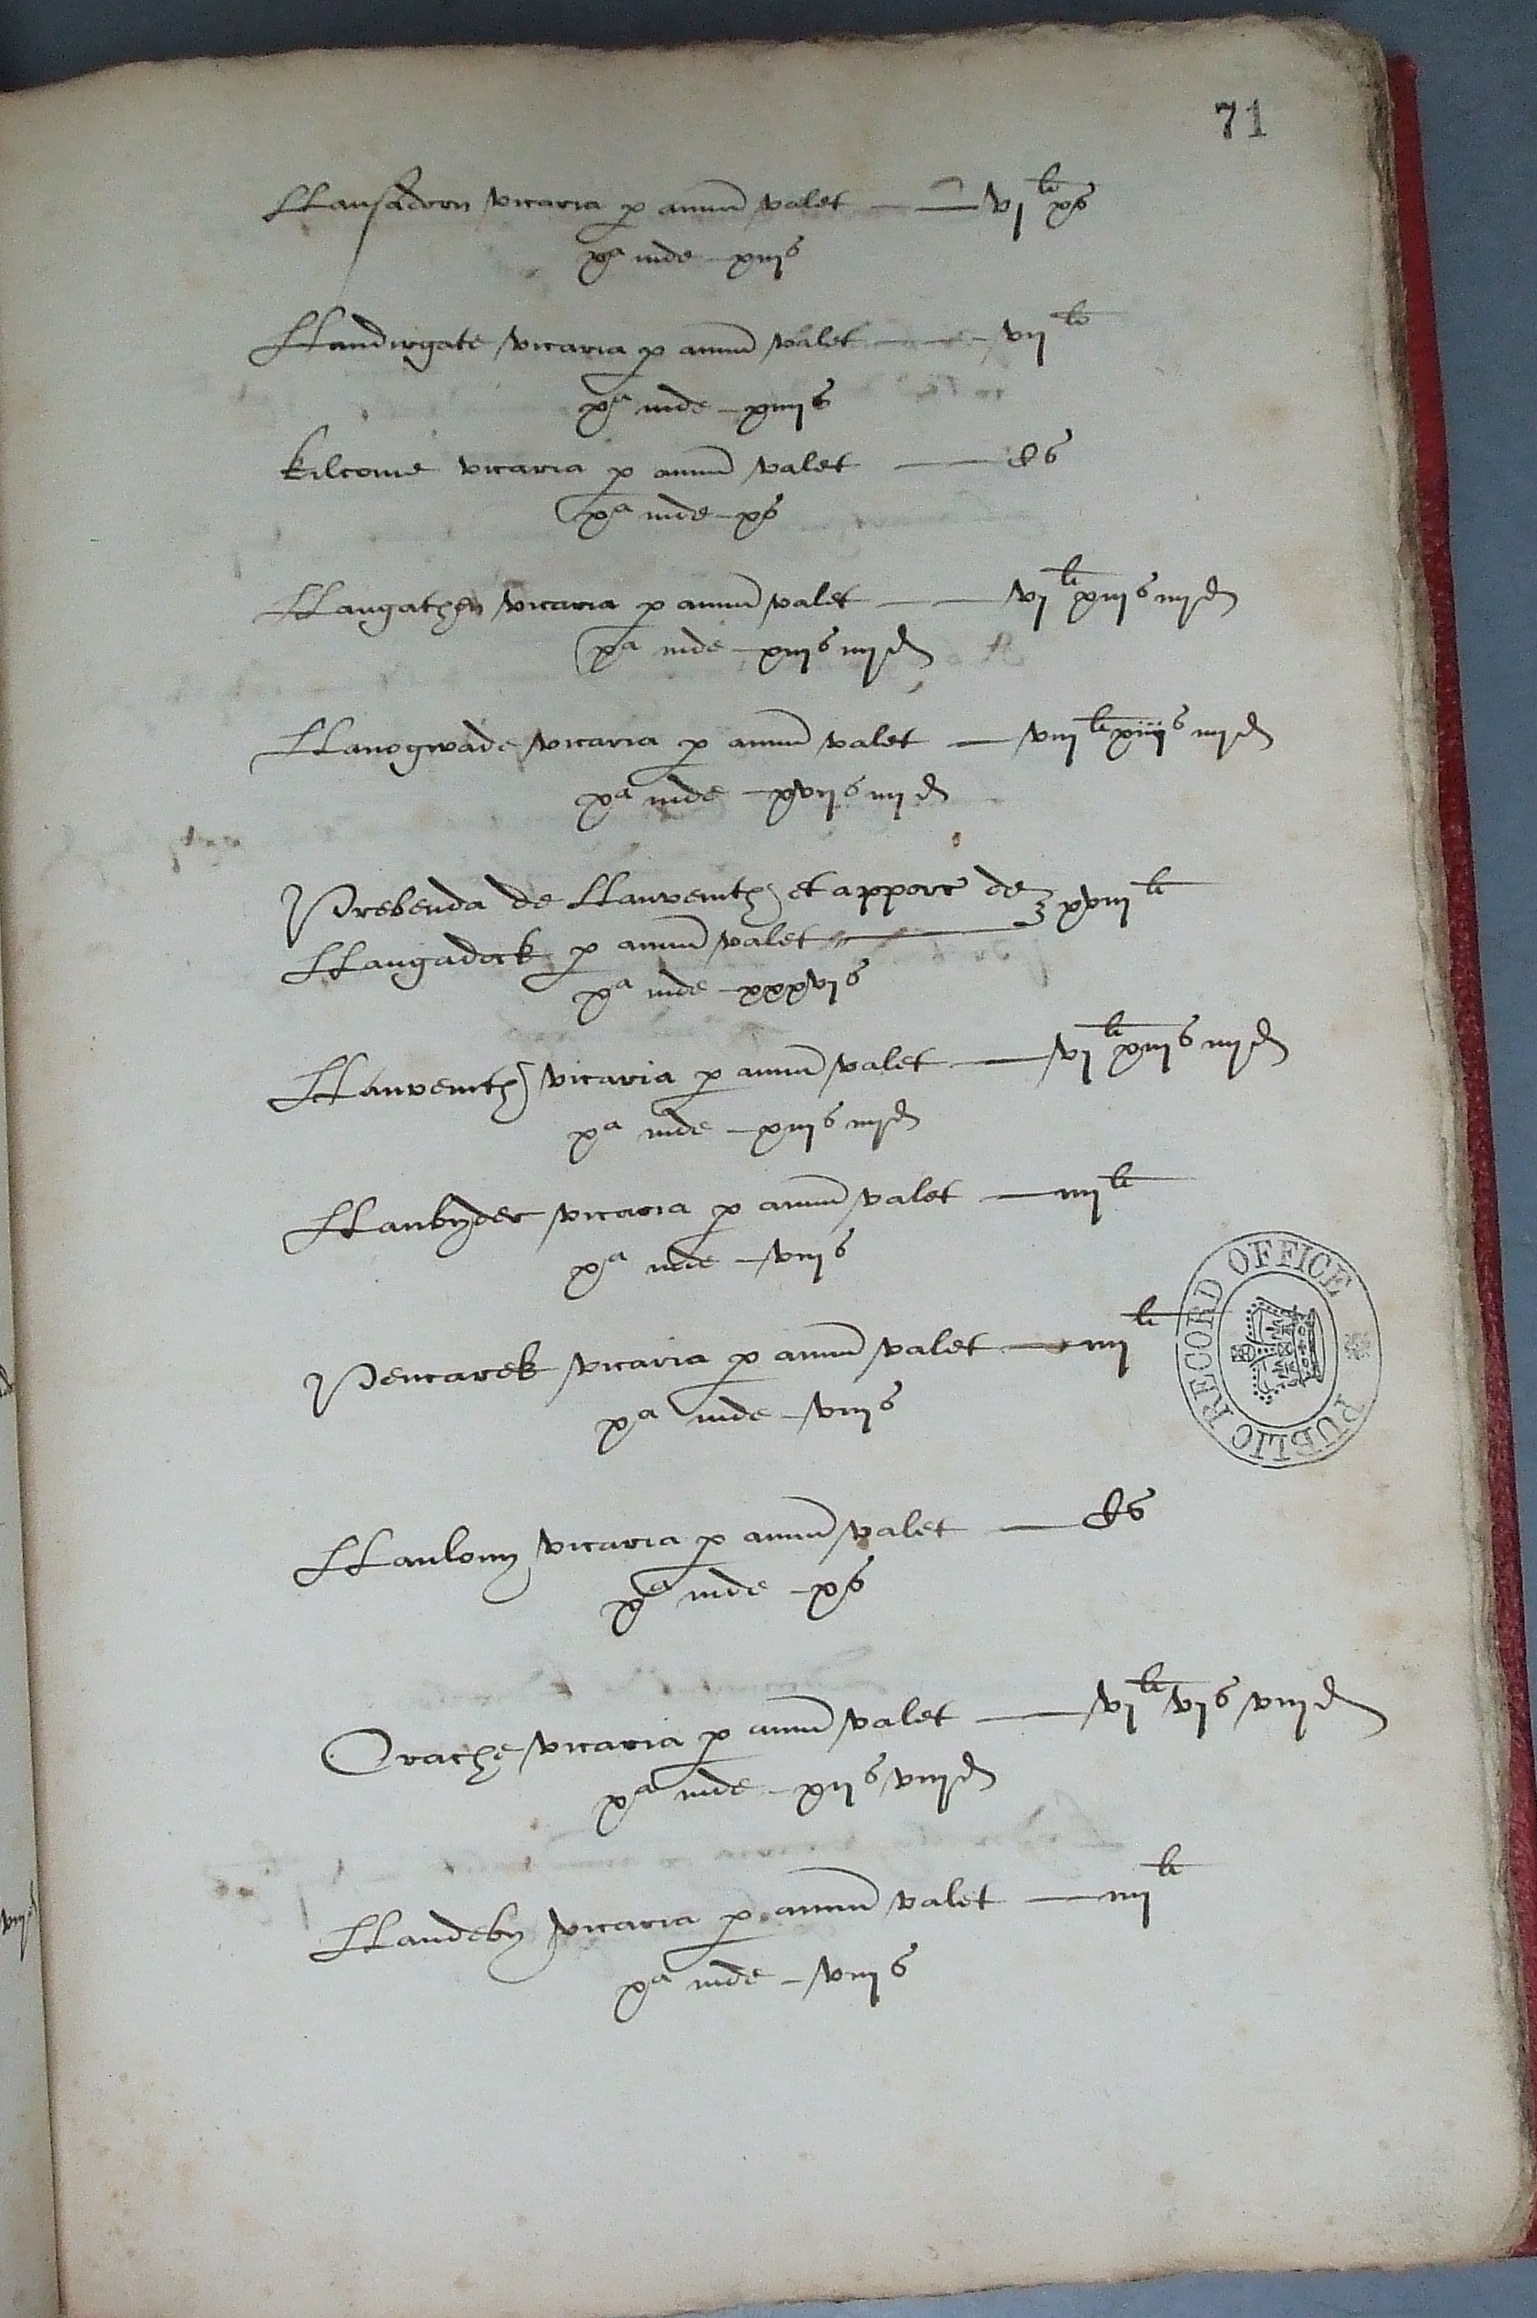 71
LLansadorn vicaria p annu valet — vj li xs
xa inde – xiijs
LLandirgate vicaria p annu valet — vij li
xa inde – xiiijs
kilcome vicaria p annu valet — Cs
xa inde – xs
LLangathen vicaria p annu valet — vj li xiijs iiijd
xa inde – xiijs iiijd
LLanogwade vicaria p annu valet — viij li xiijs iiijd
xa inde – xvijs iiijd
Prebenda de LLanvernith et apporc de
LLangadock p annu valet — xviij li
xa inde – xxxvjs
LLanvernith vicaria p annu valet — vj li xiijs iiijd
xa inde – xiijs iiijd
LLanbyder vicaria p annu valet — iiij li
xa inde – viijs
Pencarek vicaria p annu valet — iiij li
xa inde – viijs
LLanlony vicaria p annu valet — Cs
xa inde – xs
Orache vicaria p annu valet — vj li vjs viijd
xa inde – xijs viijd
LLandeby vicaria p annu valet — iiij li
xa inde – viijs
PUBLIC RECORD OFFICE